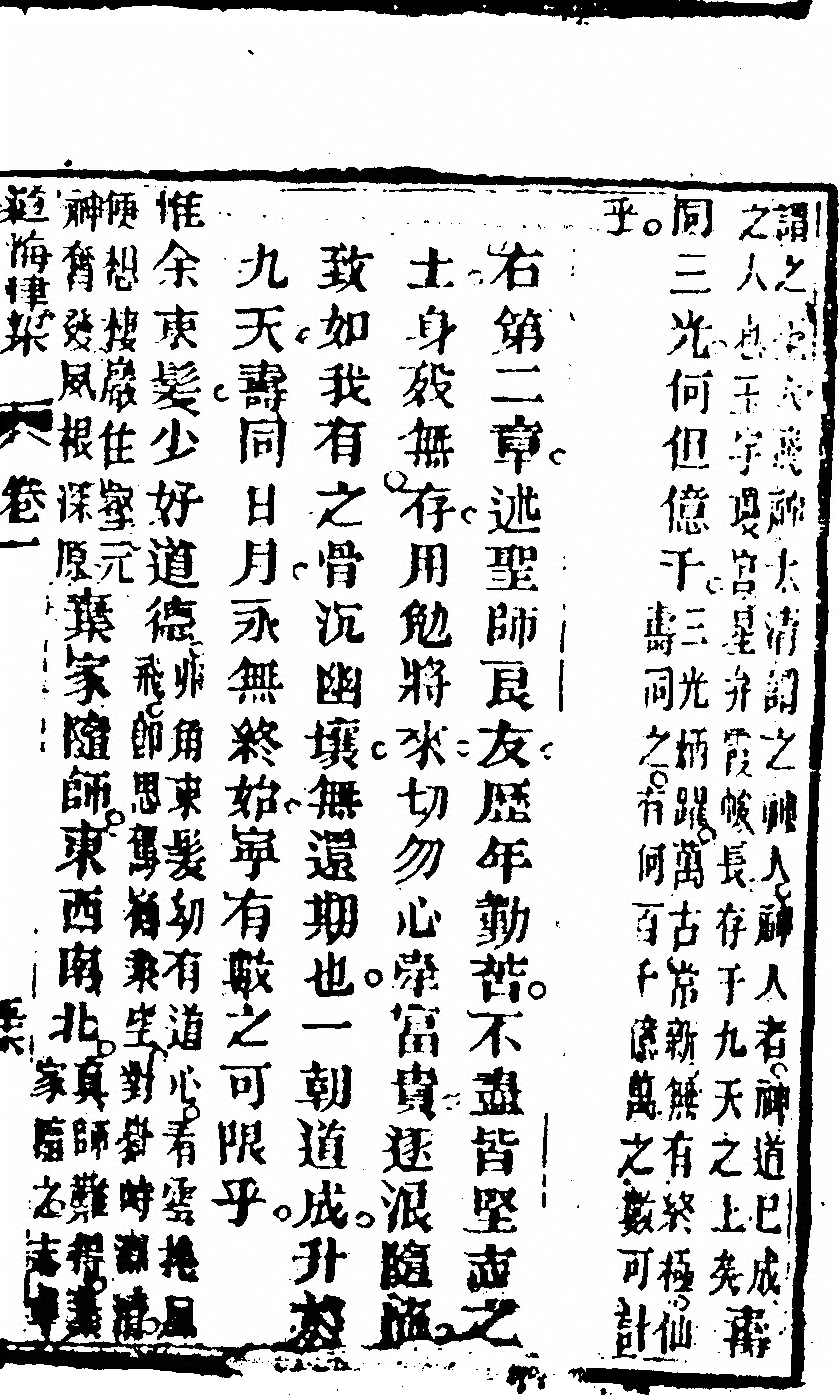 謂之神太清謂之神人神人者神道已成
之人也玉字瓊宮星弁霞帔長存于九天之上矣壽
同三光何但億千三光炳躍萬古常新無有終極仙
壽同之有何百千億萬之數可計
乎
右第二章述聖師良友歷年勤苦不盡皆堅志之
士身歿無存用勉將來切勿心榮富貴逐浪隨
致如我有之骨沉幽壤無還期也一朝道成升
九天壽同日月永無終始寧有數之可限乎
惟余束髮少好道德丱角束髮幼有道心看雲捲風
飛即思駕乘坐對時清
便想棲巖住壑元
神奮發夙根深原棄家隨師東西南北真師難得棄
家隨之志專
海津梁 卷一